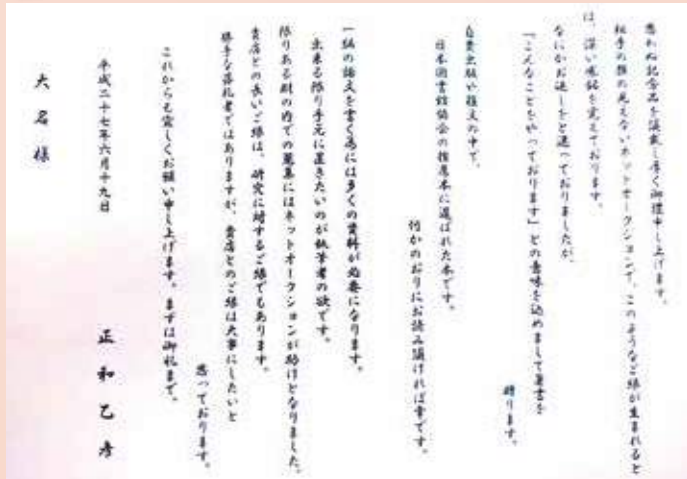 思わぬ記念品を頂戴し厚く御礼申し上げます。
相手の顔の見えないネットオークションで、このようなご縁が生まれると
は、深い感銘を覚えております。
なにかお返しをと迷っておりましたが、
「こんなことをやっております」との意味を込めまして著書を
贈ります。
自費出版や雑文の中で、
日本図書館協会の推薦本に選ばれた本です。
何かのおりにお読み頂ければ幸です。
一編の論文を書く為には多くの資料が必要になります。
出来る限り手元に置きたいのが執筆者の欲です。
限りある財の内での蒐集にはネットオークションが助けとなりました。
貴店との長いご縁は、研究に対するご縁でもあります。
勝手な落札者ではありますが、貴店とのご縁は大事にしたいと
思っております。
これからも宜しくお願い申し上げます。まずは御礼まで。
平成二十七年六月十九日
正和乙彦
大名様